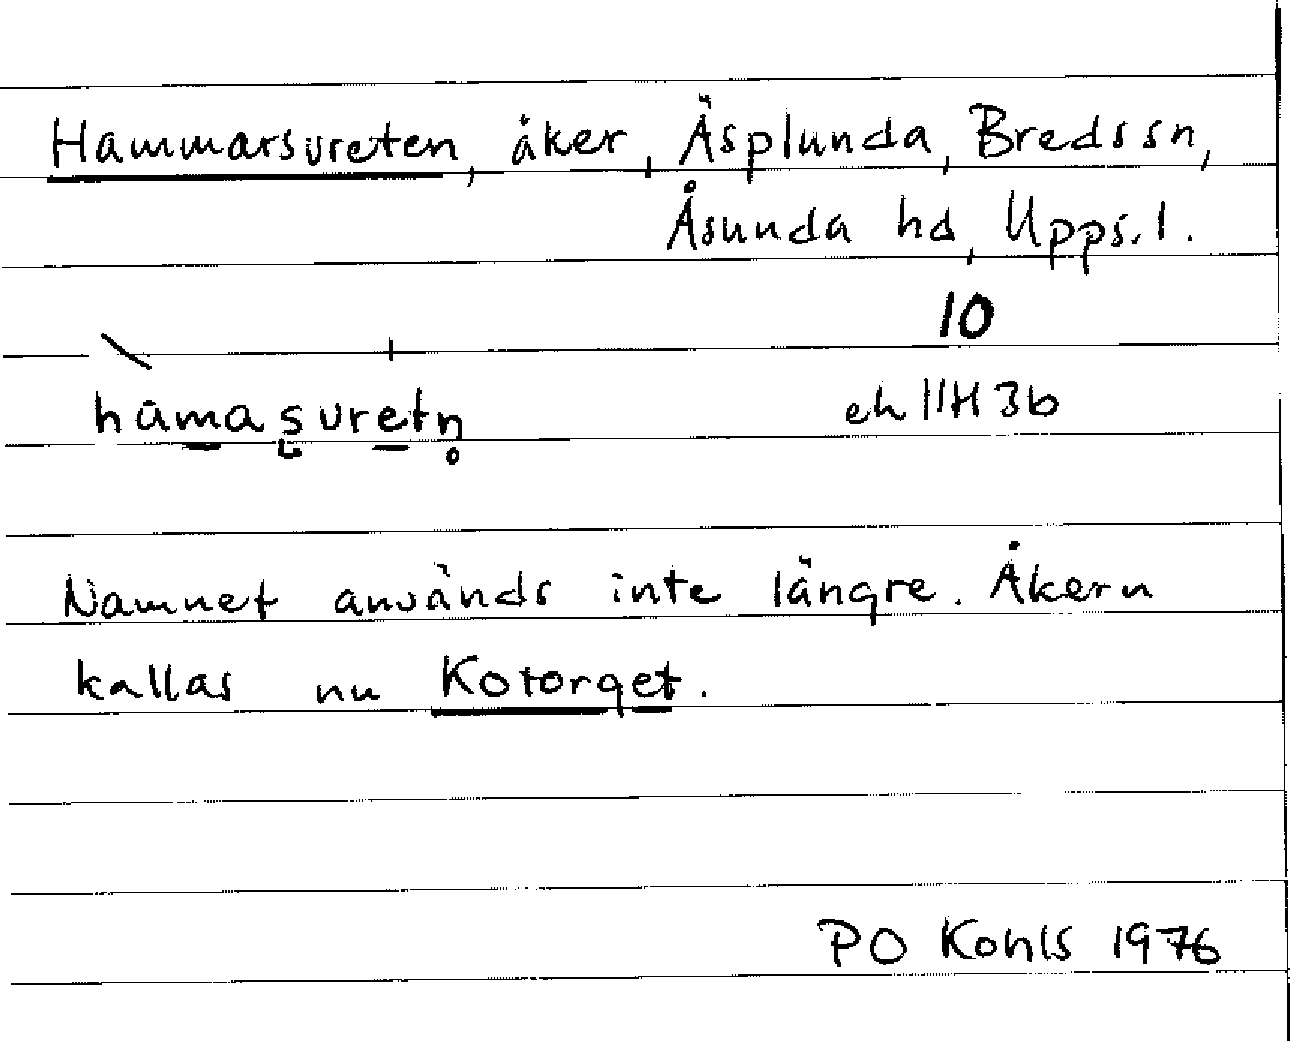 Hammarsvreten, åker, Äsplunda, Breds sn,
Åsunda hd, Upps. l.
10
hamaṣvretn̥
ek 11H 3b
Namnet används inte längre. Åkern
kallas nu Kotorget.
PO Kohls 1976